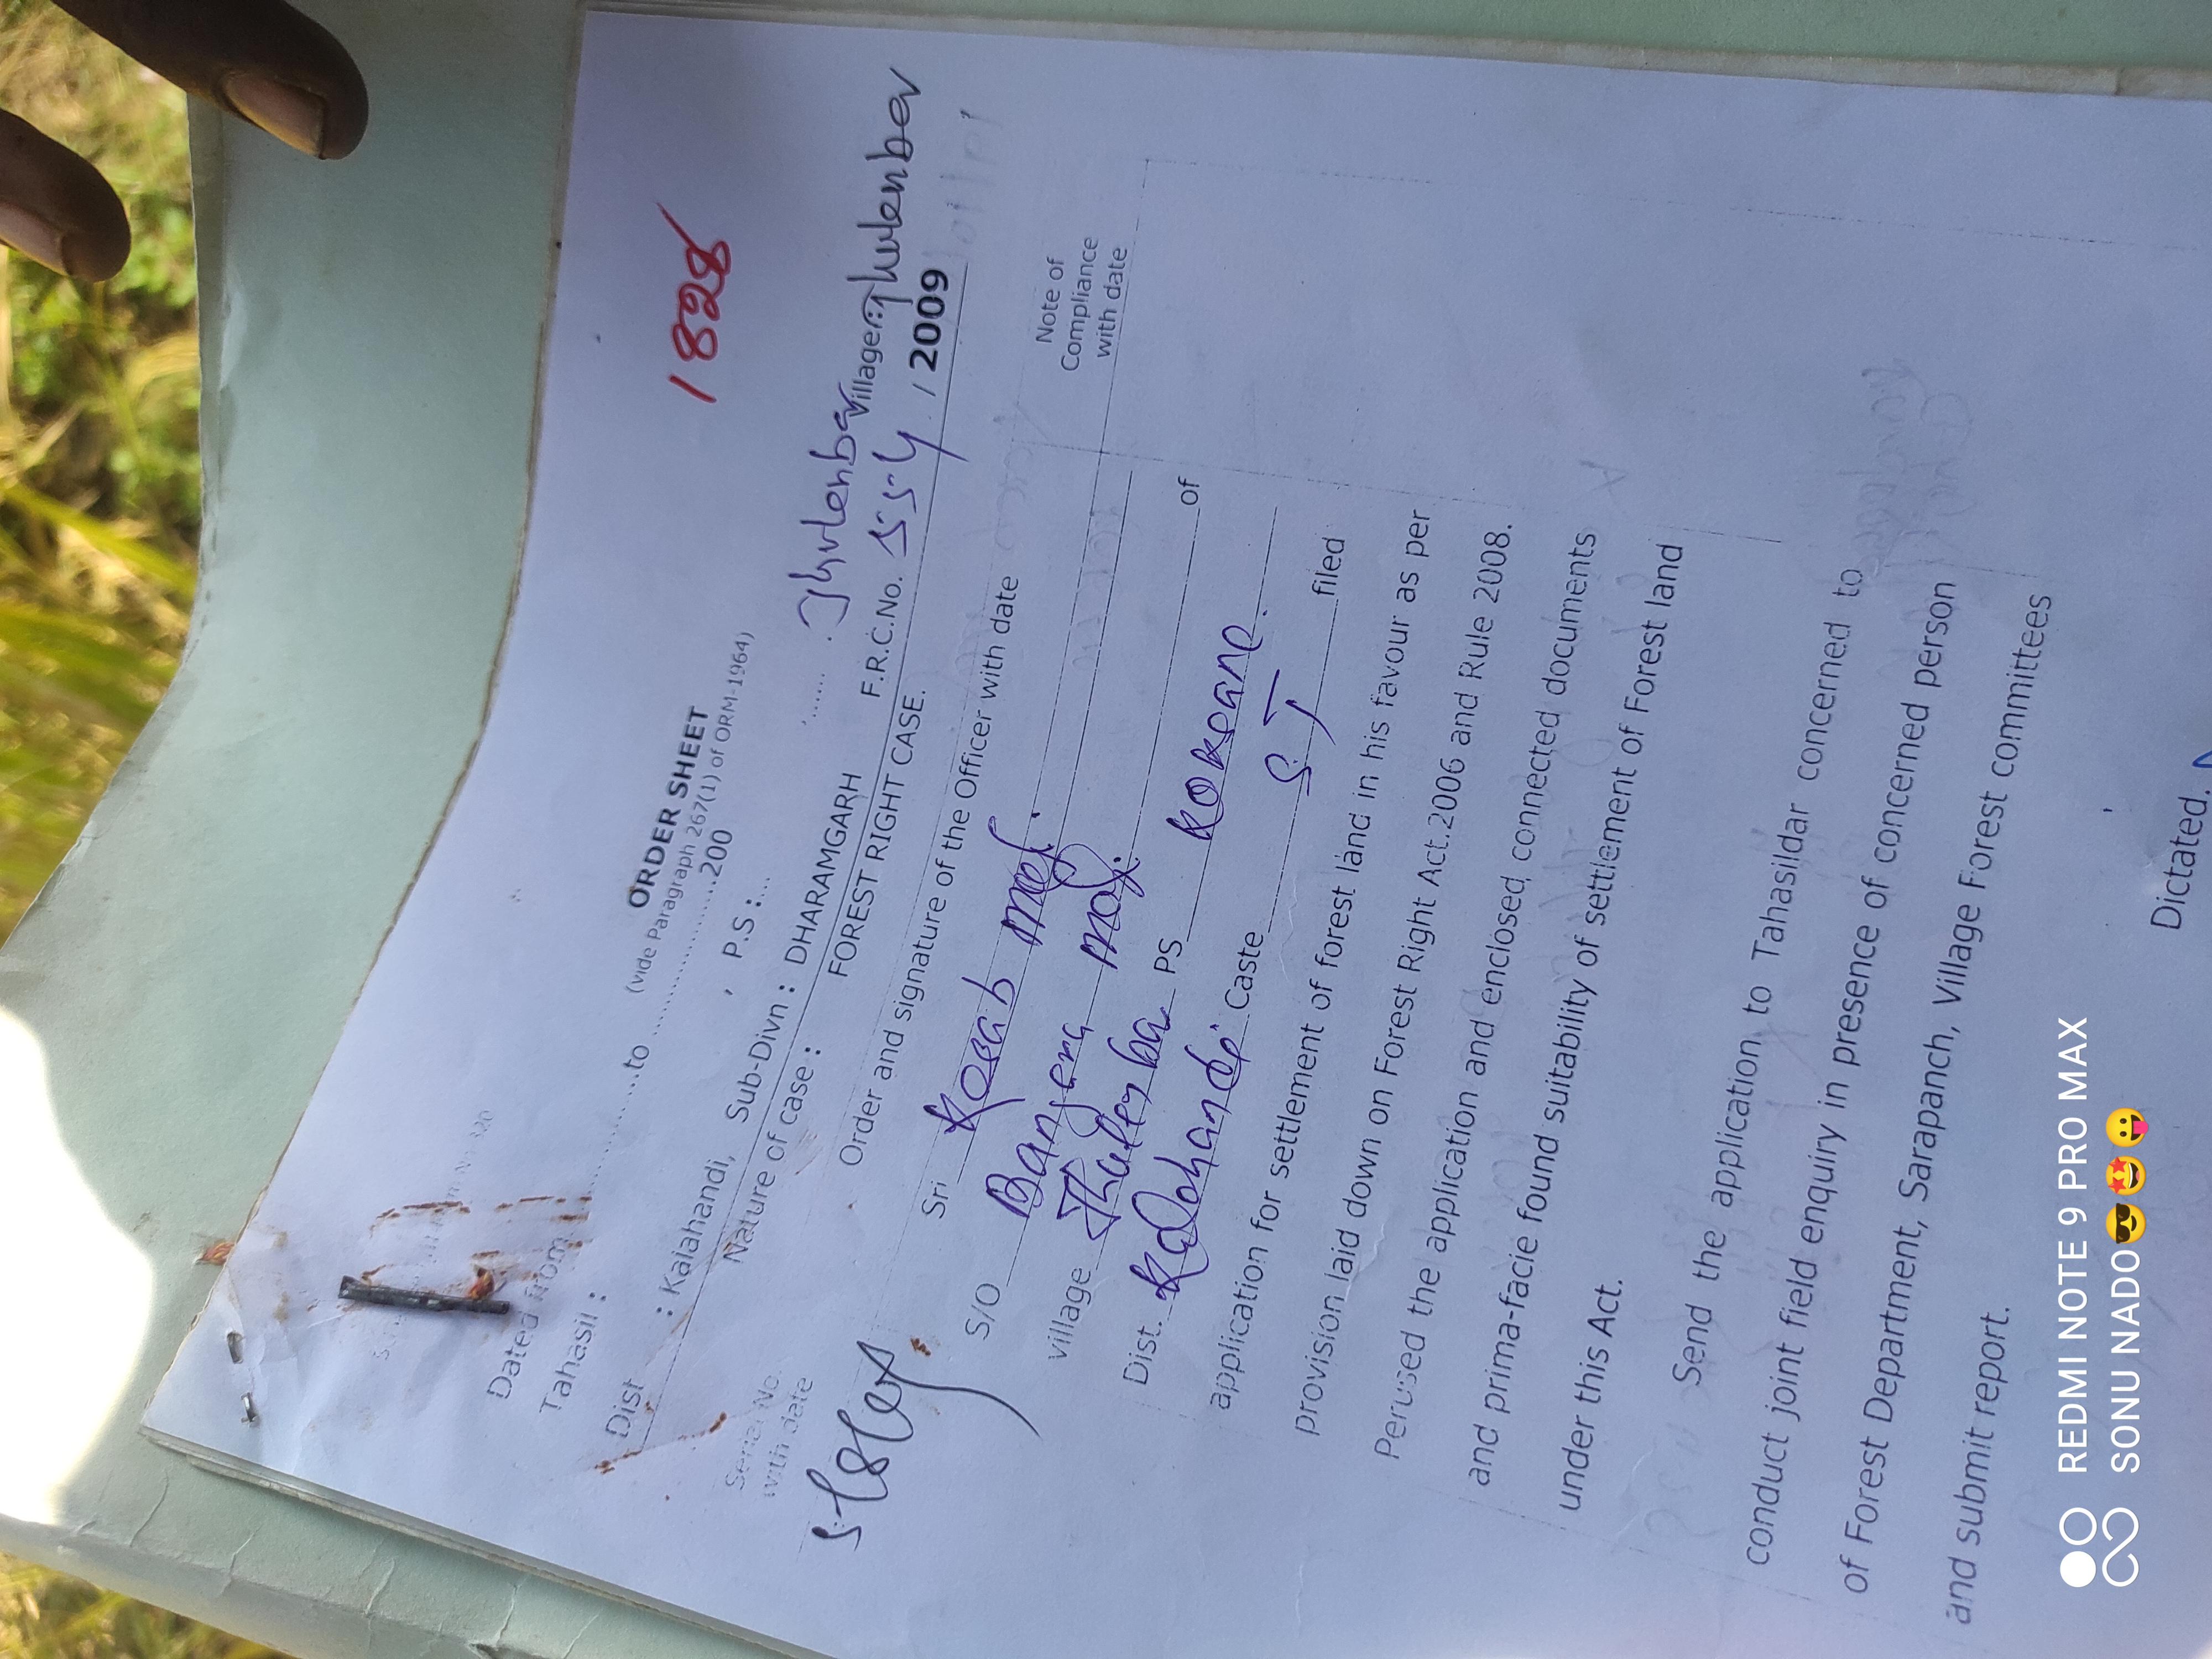 1828
ORDER SHEET
(vide Paragraph 267(1) of ORM-1964)
Dated from ............to .....................200
Tahasil : , P.S :....
Dist : Kalahandi, Sub-Divn : DHARAMGARH F.R.C.No. 554 / 2009
Village:
Nature of case : FOREST RIGHT CASE.
Serial No. with date
Order and signature of the Officer with date
Note of Compliance with date
Sri Kesab Majhi.
S/O Bangara Majhi.
village PS Koksara.
Dist. Kalahandi Caste ST filed
of
application for settlement of forest land in his favour as per
provision laid down on Forest Right Act.2006 and Rule 2008.
Perused the application and enclosed connected documents
and prima-facie found suitability of settlement of Forest land
under this Act.
Send the application to Tahasildar concerned to
conduct joint field enquiry in presence of concerned person
of Forest Department, Sarapanch, Village Forest committees
and submit report.
Dictated.
REDMI NOTE 9 PRO MAX
SONU NADO😎🤩😛